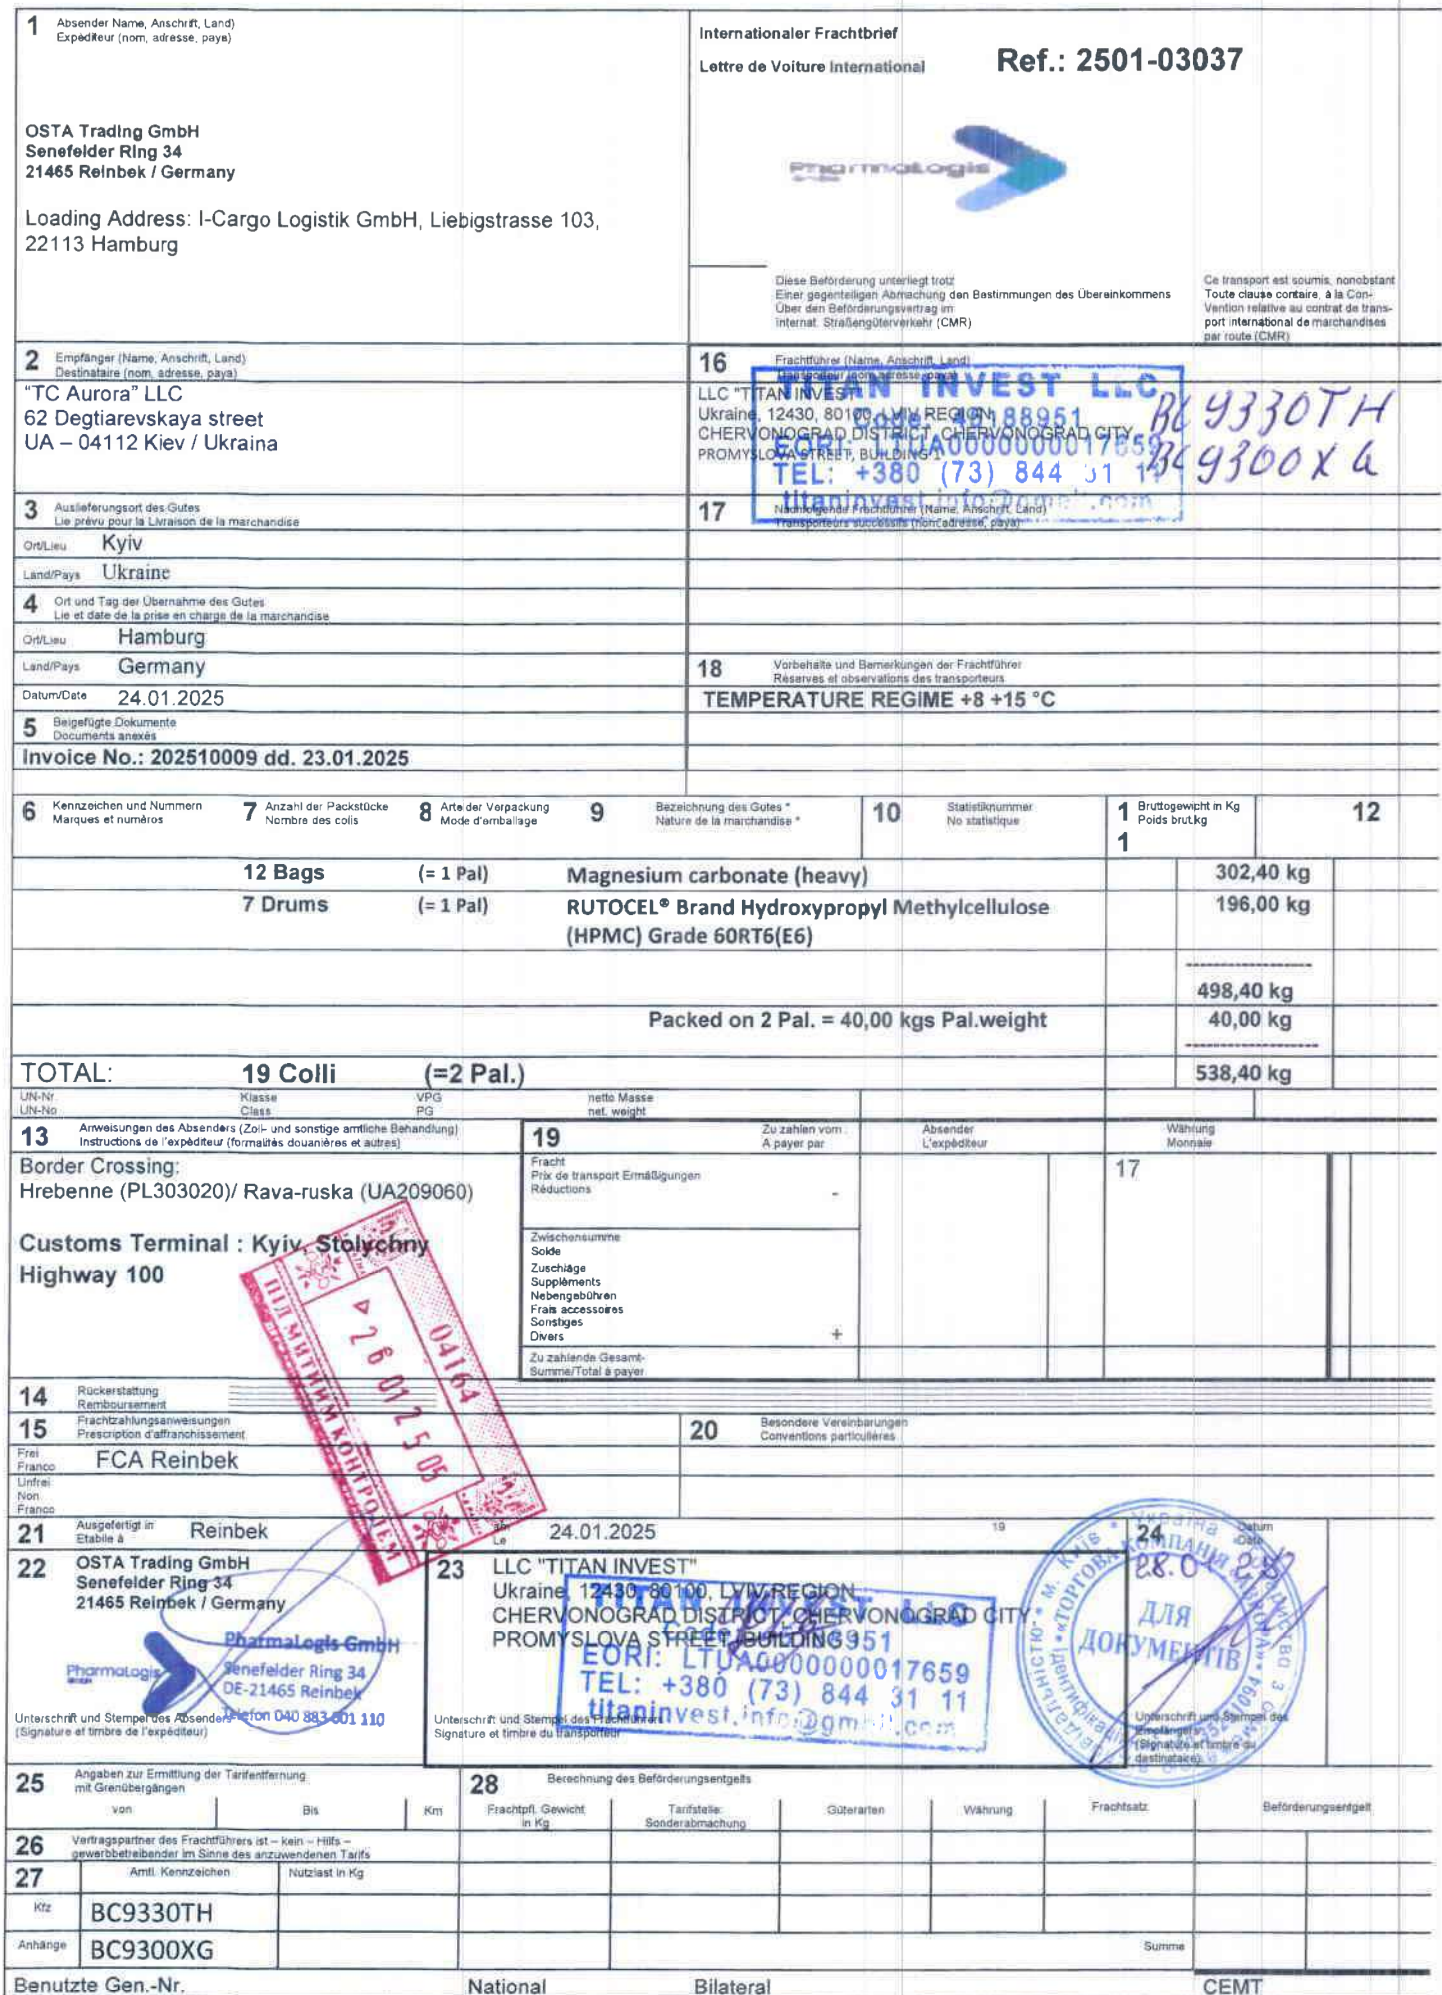 1 Absender Name, Anschrift, Land)
Expéditeur (nom, adresse, pays)
OSTA Trading GmbH
Senefelder Ring 34
21465 Reinbek / Germany
Loading Address: I-Cargo Logistik GmbH, Liebigstrasse 103,
22113 Hamburg
Internationaler Frachtbrief
Lettre de Voiture International
Ref.: 2501-03037
PharmaLogis
Diese Beförderung unterliegt trotz
Einer gegenteiligen Abmachung den Bestimmungen des Übereinkommens
Über den Beförderungsvertrag im
internat. Straßengüterverkehr (CMR)
Ce transport est soumis, nonobstant
Toute clause contaire, à la Con-
Vention relative au contrat de trans-
port international de marchandises
par route (CMR)
2 Empfänger (Name, Anschrift, Land)
Destinataire (nom, adresse, paya)
"TC Aurora" LLC
62 Degtiarevskaya street
UA – 04112 Kiev / Ukraina
16 Frachtführer (Name, Anschrift, Land)
LLC "TITAN INVEST"
Ukraine, 12430, 80100, LVIV REGION
CHERVONOGRAD DISTRICT, CHERVONOGRAD CITY,
PROMYSLOVA STREET, BUILDING 1
TITAN INVEST LLC
EORI: LTUA0000000017659
TEL: +380 (73) 844 31 11
titaninvest.info@gmail.com
BC 9330TH
BC 9300XG
3 Auslieferungsort des Gutes
Lie prévu pour la Livraison de la marchandise
Ort/Lieu Kyiv
Land/Pays Ukraine
17 Nachfolgende Frachtführer (Name, Anschrift, Land)
Transporteurs successifs (nom, adresse, paya)
4 Ort und Tag der Übernahme des Gutes
Lie et date de la prise en charge de la marchandise
Ort/Lieu Hamburg
Land/Pays Germany
Datum/Date 24.01.2025
18 Vorbehalte und Bemerkungen der Frachtführer
Réserves et observations des transporteurs
TEMPERATURE REGIME +8 +15 °C
5 Beigefügte Dokumente
Documents anexés
Invoice No.: 202510009 dd. 23.01.2025
6 Kennzeichen und Nummern
Marques et numéros
7 Anzahl der Packstücke
Nombre des colis
8 Arte der Verpackung
Mode d'emballage
9 Bezeichnung des Gutes *
Nature de la marchandise *
10 Statistiknummer
No statistique
11 Bruttogewicht in Kg
Poids brut,kg
12
12 Bags (= 1 Pal) Magnesium carbonate (heavy) 302,40 kg
7 Drums (= 1 Pal) RUTOCEL® Brand Hydroxypropyl Methylcellulose 196,00 kg
(HPMC) Grade 60RT6(E6)
498,40 kg
Packed on 2 Pal. = 40,00 kgs Pal.weight 40,00 kg
TOTAL: 19 Colli (=2 Pal.) 538,40 kg
UN-Nr. Klasse VPG netto Masse
UN-No Class PG net. weight
13 Anweisungen des Absenders (Zoll- und sonstige amtliche Behandlung)
Instructions de l'expéditeur (formalités douanières et autres)
Border Crossing:
Hrebenne (PL303020)/ Rava-ruska (UA209060)
Customs Terminal : Kyiv, Stolychny
Highway 100
ПІД МИТНИМ КОНТРОЛЕМ
26 01 25 05
04164
19 Zu zahlen vom Absender Währung
A payer par L'expéditeur Monnaie
Fracht
Prix de transport Ermäßigungen
Réductions -
17
Zwischensumme
Solde
Zuschläge
Suppléments
Nebengebühren
Frais accessoires
Sonstiges
Divers +
Zu zahlende Gesamt-
Summe/Total à payer
14 Rückerstattung
Remboursement
15 Frachtzahlungsanweisungen
Prescription d'affranchissement
Frei
Franco FCA Reinbek
Unfrei
Non
Franco
20 Besondere Vereinbarungen
Conventions particulières
21 Ausgefertigt in
Etablie à Reinbek
Le 24.01.2025 19
24 Datum
Date
22 OSTA Trading GmbH
Senefelder Ring 34
21465 Reinbek / Germany
PharmaLogis GmbH
Senefelder Ring 34
DE-21465 Reinbek
Telefon 040 883 601 110
PharmaLogis
Unterschrift und Stempel des Absenders
(Signature et timbre de l'expéditeur)
23 LLC "TITAN INVEST"
Ukraine, 12430, 80100, LVIV REGION
CHERVONOGRAD DISTRICT, CHERVONOGRAD CITY,
PROMYSLOVA STREET, BUILDING 1
TITAN INVEST LLC
EORI: LTUA0000000017659
TEL: +380 (73) 844 31 11
titaninvest.info@gmail.com
Unterschrift und Stempel des Frachtführers
Signature et timbre du transporteur
Україна
м. Київ
ДЛЯ
ДОКУМЕНТІВ
Unterschrift und Stempel des
Empfängers
(Signature et timbre du
destinataire)
25 Angaben zur Ermittlung der Tarifentfernung
mit Grenübergängen
von Bis Km
28 Berechnung des Beförderungsentgelts
Frachtpfl. Gewicht
in Kg
Tarifstelle:
Sonderabmachung
Güterarten Währung Frachtsatz Beförderungsentgelt
26 Vertragspartner des Frachtführers ist – kein – Hilfs –
gewerbbetreibender im Sinne des anzuwendenen Tarifs
27 Amtl. Kennzeichen Nutzlast in Kg
Kfz BC9330TH
Anhänge BC9300XG
Summe
Benutzte Gen.-Nr. National Bilateral CEMT